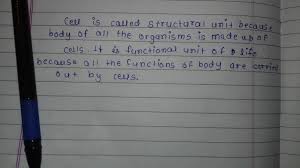 Cell is called structural unit because
body of all the organisms is made up of
cells. It is functional unit of life
because all the functions of body are carried
out by cells.